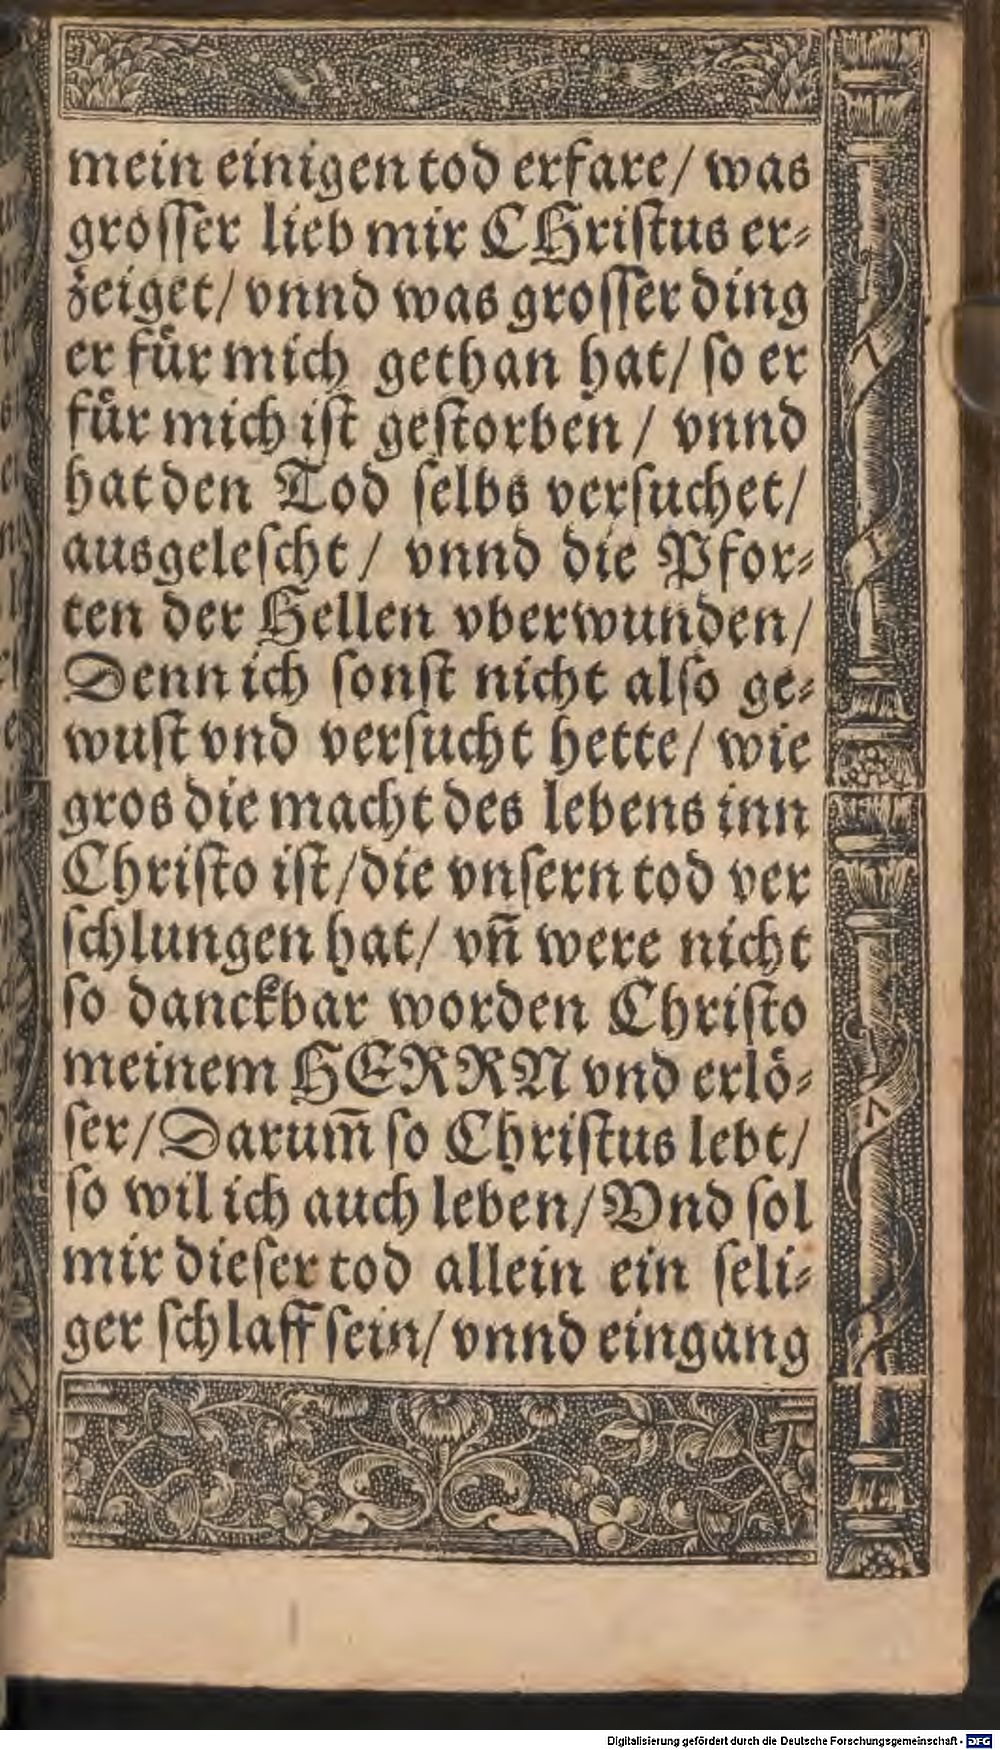 mein einigen tod erfare/ was
groſſer lieb mir CHriſtus er⸗
zeiget/ vnnd was groſſer ding
er fuͤr mich gethan hat/ ſo er
fuͤr mich iſt geſtorben / vnnd
hat den Tod ſelbs verſuchet/
ausgeleſcht / vnnd die Pfor⸗
ten der Hellen vberwunden/
Denn ich ſonſt nicht alſo ge⸗
wuſt vnd verſucht hette/ wie
gros die macht des lebens inn
Chriſto iſt/die vnſern tod ver
ſchlungen hat/ vn̄ were nicht
ſo danckbar worden Chriſto
meinem HERRN vnd erlö⸗
ſer/Darum̄ ſo Chriſtus lebt/
ſo wil ich auch leben/Vnd ſol
mir dieſer tod allein ein ſeli⸗
ger ſchlaff ſein/ vnnd eingang
Digitalisierung gefördert durch die Deutsche Forschungsgemeinschaft - DFG